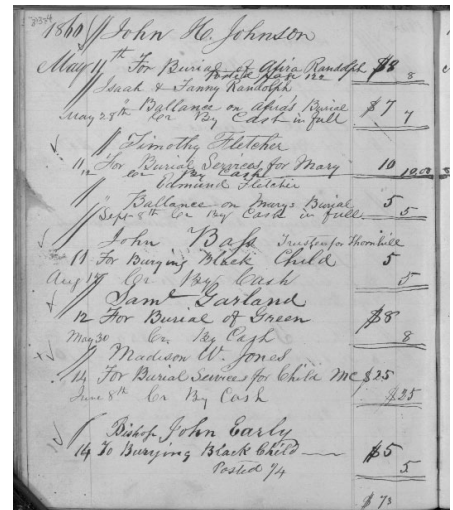 8334
1860 // John H. Johnson
May 11th For Burial of Afira Randolph $8 8
Posted Page 122
Isaah & Fanny Randolph
" Ballance on Afira's Burial $7
May 28th Cr By Cash in full 7
// Timothy Fletcher
11 For Burial Services for Mary 10
12 Cr By Cash 10.00
// Edmund Fletcher
" Ballance on Marys Burial 5
Sept 8th Cr By Cash in full 5
// John Bass Trustee for Thornhill
11 For Burying Black Child 5
Aug 17 Cr By Cash 5
// Saml Garland
12 For Burial of Green $8
May 30 Cr By Cash 8
// Madison W. Jones
14 For Burial Services for Child Mc $25
June 8th Cr By Cash $25
// Bishop John Early
14 To Burying Black Child $5
Posted 1/4 5
$73